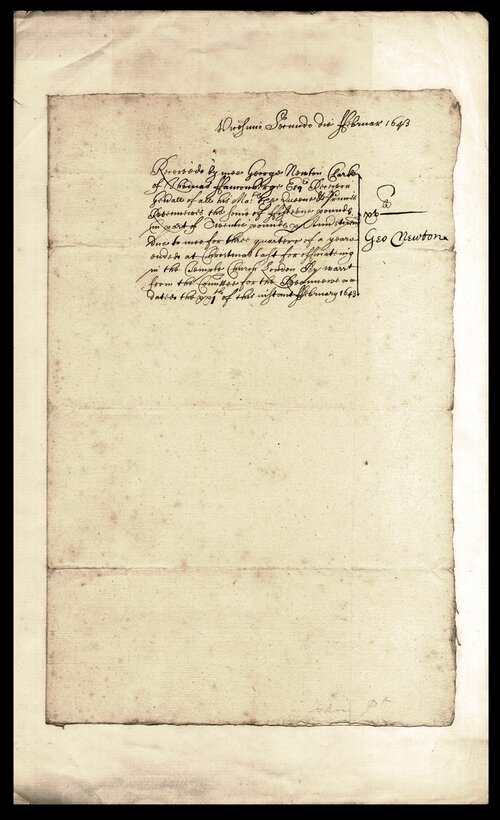 Vicesimo Secundo die Februar 1643
Received by mee George Newton Clarke
of Thomas Fauconberge Esqr Receivor
Gen'all of all his Ma:ts the Queenes & Princes
Revennewes the some of Fifteene pounds
in part of Twentie pounds
due to mee for three quarters of a yeare
ended at Christmas last for officiating
in the Temple Church London By warrt
from the Comittee for the Revennewe
dated the xxjth of this instant February 1643.
li
xv
Geo Newton